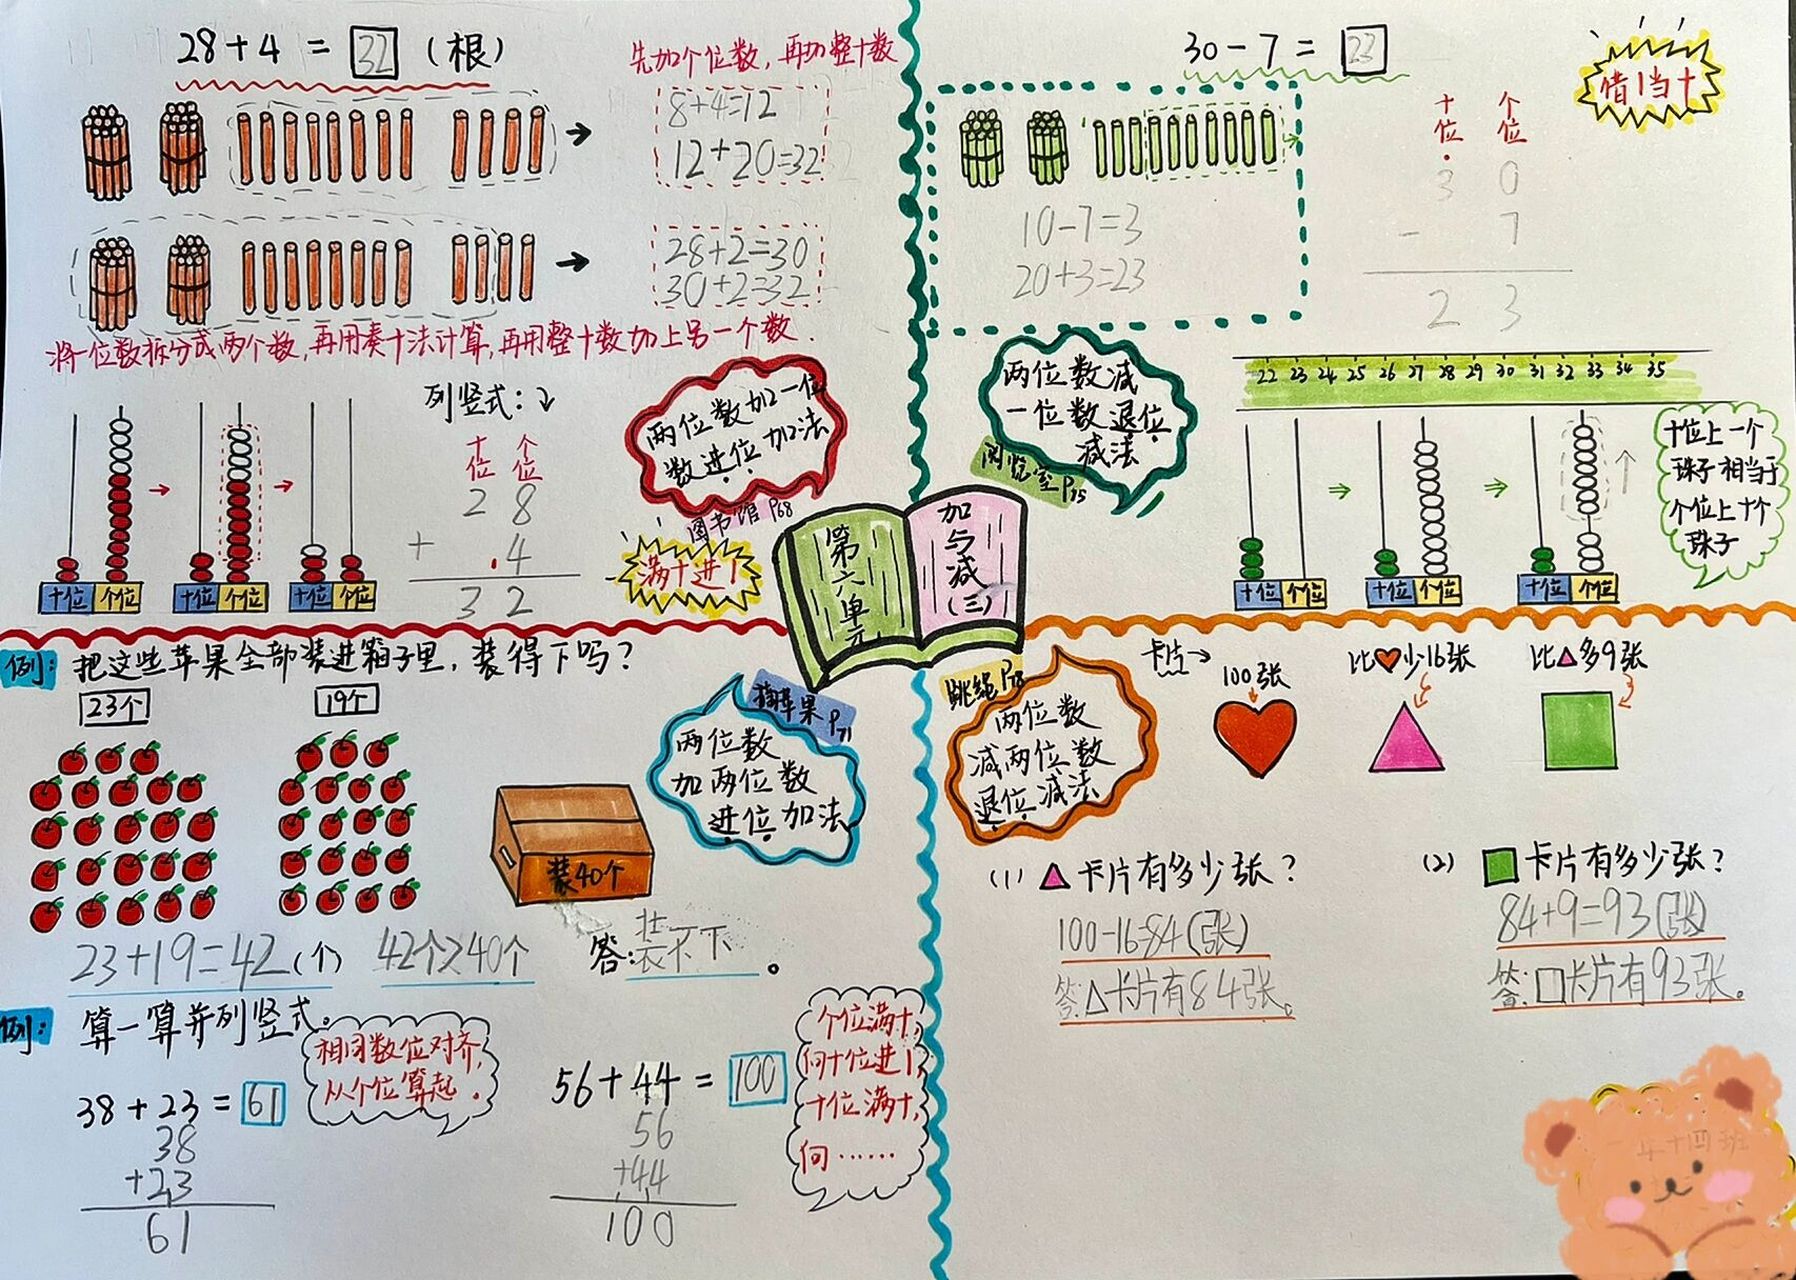 28+4=32(根)
先加个位数,再加整十数
8+4=12
12+20=32
28+2=30
30+2=32
将一位数拆分成两个数,再用凑十法计算,再用整十数加上另一个数.
列竖式:
十位 个位
2 8
+ 4
3 2
十位 个位
十位 个位
十位 个位
两位数加一位
数进位加法
图书馆 P68
满十进1
第六单元
加与减(三)
30-7=23
借1当十
十位 个位
3 0
- 7
2 3
10-7=3
20+3=23
两位数减
一位数退位
减法
阅览室 P75
22 23 24 25 26 27 28 29 30 31 32 33 34 35
十位 个位
十位 个位
十位 个位
十位上一个
珠子相当于
个位上十个
珠子
例:把这些苹果全部装进箱子里,装得下吗?
23个
19个
装40个
摘苹果 P71
两位数
加两位数
进位加法
23+19=42(个)
42个>40个
答:装不下。
例:算一算并列竖式。
相同数位对齐,
从个位算起.
38+23=61
38
+23
61
56+44=100
56
+44
100
个位满十,
向十位进1,
十位满十,
向……
跳绳 P78
两位数
减两位数
退位减法
卡片→
100张
比♥少16张
比▲多9张
(1)▲卡片有多少张?
100-16=84(张)
答:△卡片有84张。
(2)■卡片有多少张?
84+9=93(张)
答:□卡片有93张。